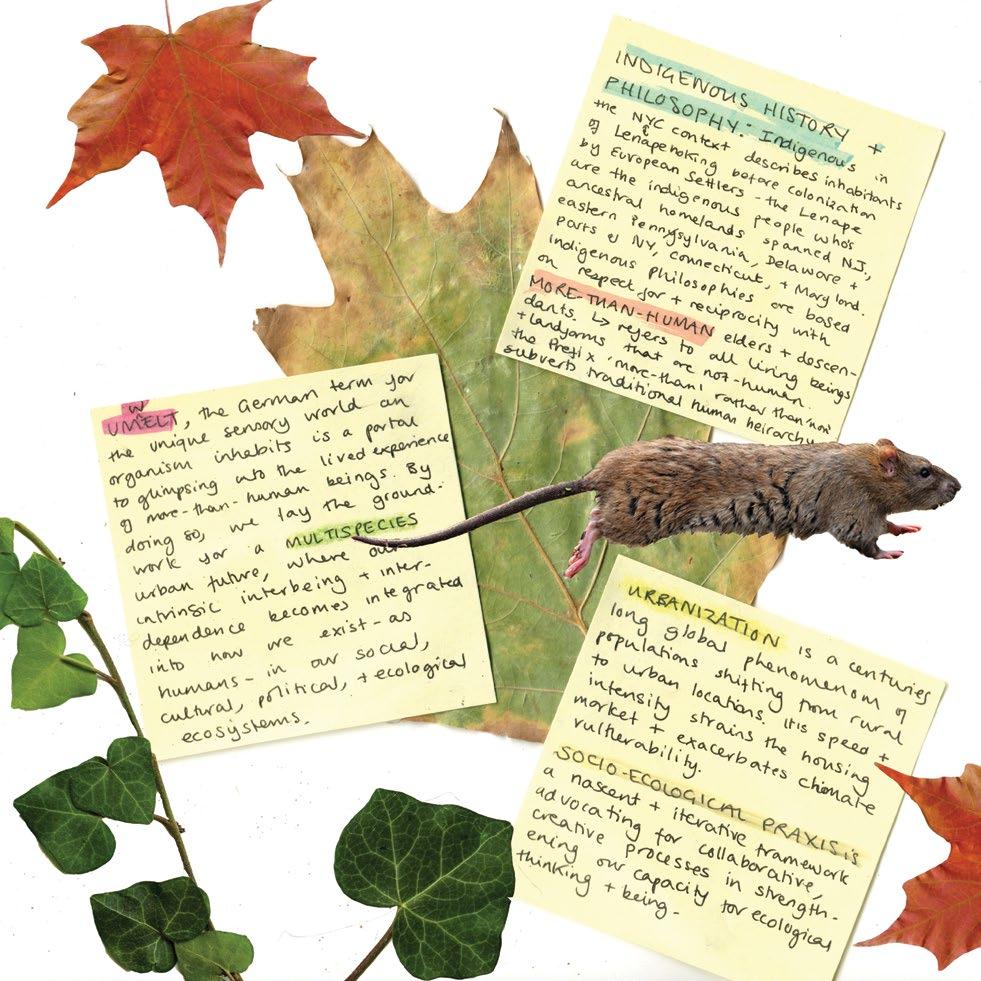 INDIGENOUS HISTORY +
PHILOSOPHY: Indigenous in
the NYC context describes inhabitants
of Lenapehoking before colonization
by European Settlers - the Lenape
are the indigenous people who's
ancestral homelands spanned NJ,
eastern Pennysylvania, Delaware +
parts of NY, Connecticut, + Maryland.
Indigenous Philosophies are based
on respect for + reciprocity with
MORE-THAN-HUMAN elders + descen-
dants. ↳ refers to all living beings
+ landforms that are not-human.
the Prefix 'more-than' rather than 'non'
subverts traditional human heirarchy
UMWELT, the German term for
the unique sensory world an
organism inhabits is a portal
to glimpsing into the lived experience
of more-than-human beings. By
doing so, we lay the ground-
work for a MULTISPECIES
urban future, where our
intrinsic interbeing + inter-
dependence becomes integrated
into how we exist - as
humans - in our social,
cultural, political, + ecological
ecosystems.
URBANIZATION is a centuries
long global phenomenom of
populations shifting from rural
to urban locations. It's speed +
intensity strains the housing
market + exacerbates climate
vulnerability.
SOCIO-ECOLOGICAL PRAXIS is
a nascent + iterative framework
advocating for collaborative,
creative processes in strength-
ening our capacity for ecological
thinking + being.